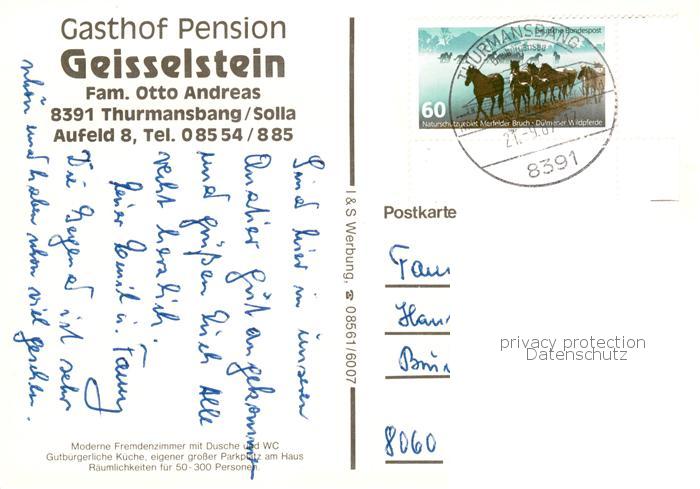 Gasthof Pension
Geisselstein
Fam. Otto Andreas
8391 Thurmansbang/Solla
Aufeld 8, Tel. 0 85 54 / 8 85
Sind hier in unserem
Quartier gut angekommen
und grüßen Euch alle
recht herzlich.
Die Gegend ist sehr
schön und haben schon viel gesehen.
Moderne Fremdenzimmer mit Dusche und WC
Gutbürgerliche Küche, eigener großer Parkplatz am Haus
Räumlichkeiten für 50-300 Personen.
I & S Werbung, ☎ 08561/6007
Deutsche Bundespost
60
Naturschutzgebiet Merfelder Bruch · Dülmener Wildpferde
THURMANSBANG
8391
Postkarte
Fam
8060
privacy protection
Datenschutz